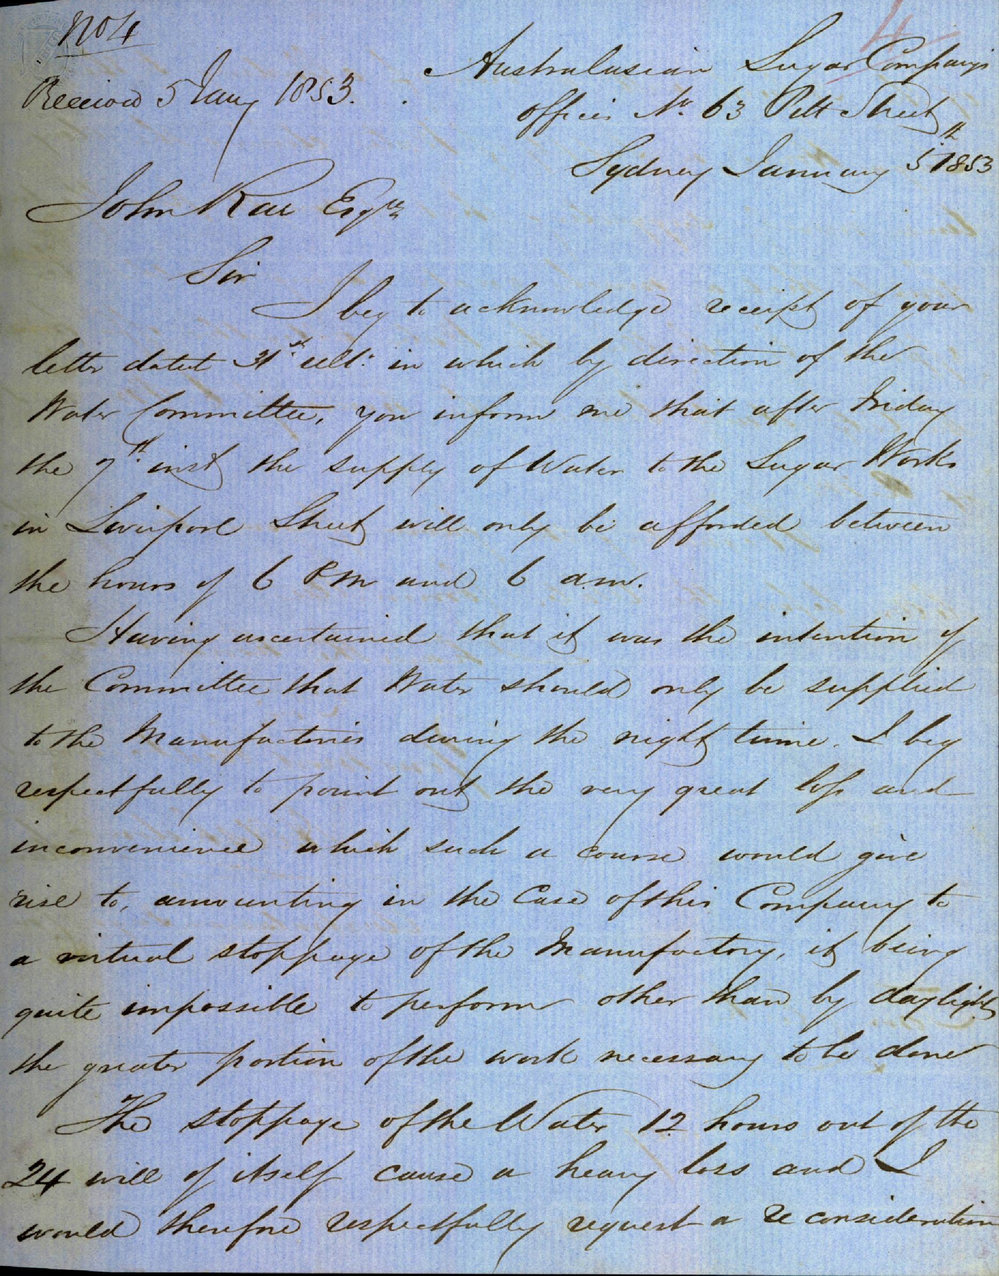 No 4
4
Received 5 Jany 1853.
Australasian Sugar Company's
offices No. 63 Pitt Street
Sydney January 5th 1853
John Rae Esqre
Sir
I beg to acknowledge receipt of your
letter dated 31st ult: in which by direction of the
Water Committee, you inform me that after Friday
the 7th inst the supply of Water to the Sugar Works
in Liverpool Street will only be afforded between
the hours of 6 PM and 6 am.
Having ascertained that it was the intention of
the Committee that Water should only be supplied
to the Manufactories during the night time. I beg
respectfully to point out the very great loss and
inconvenience which such a course would give
rise to, amounting in the Case of this Company to
a virtual stoppage of the Manufactory, it being
quite impossible to perform other than by daylight
the greater portion of the work necessary to be done
The stoppage of the Water 12 hours out of the
24 will of itself cause a heavy loss and I
would therefore respectfully request a reconsideration